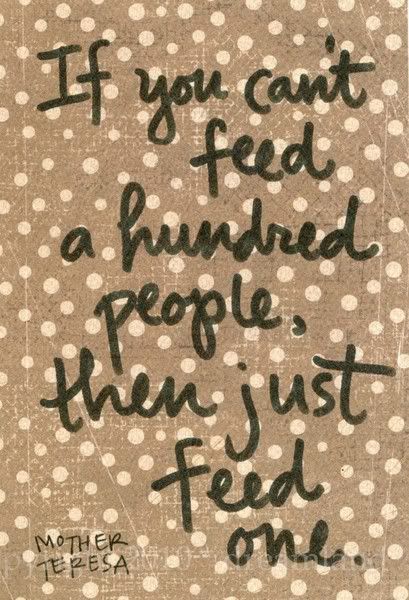 If you can't
feed
a hundred
people,
then just
feed
one.
MOTHER
TERESA